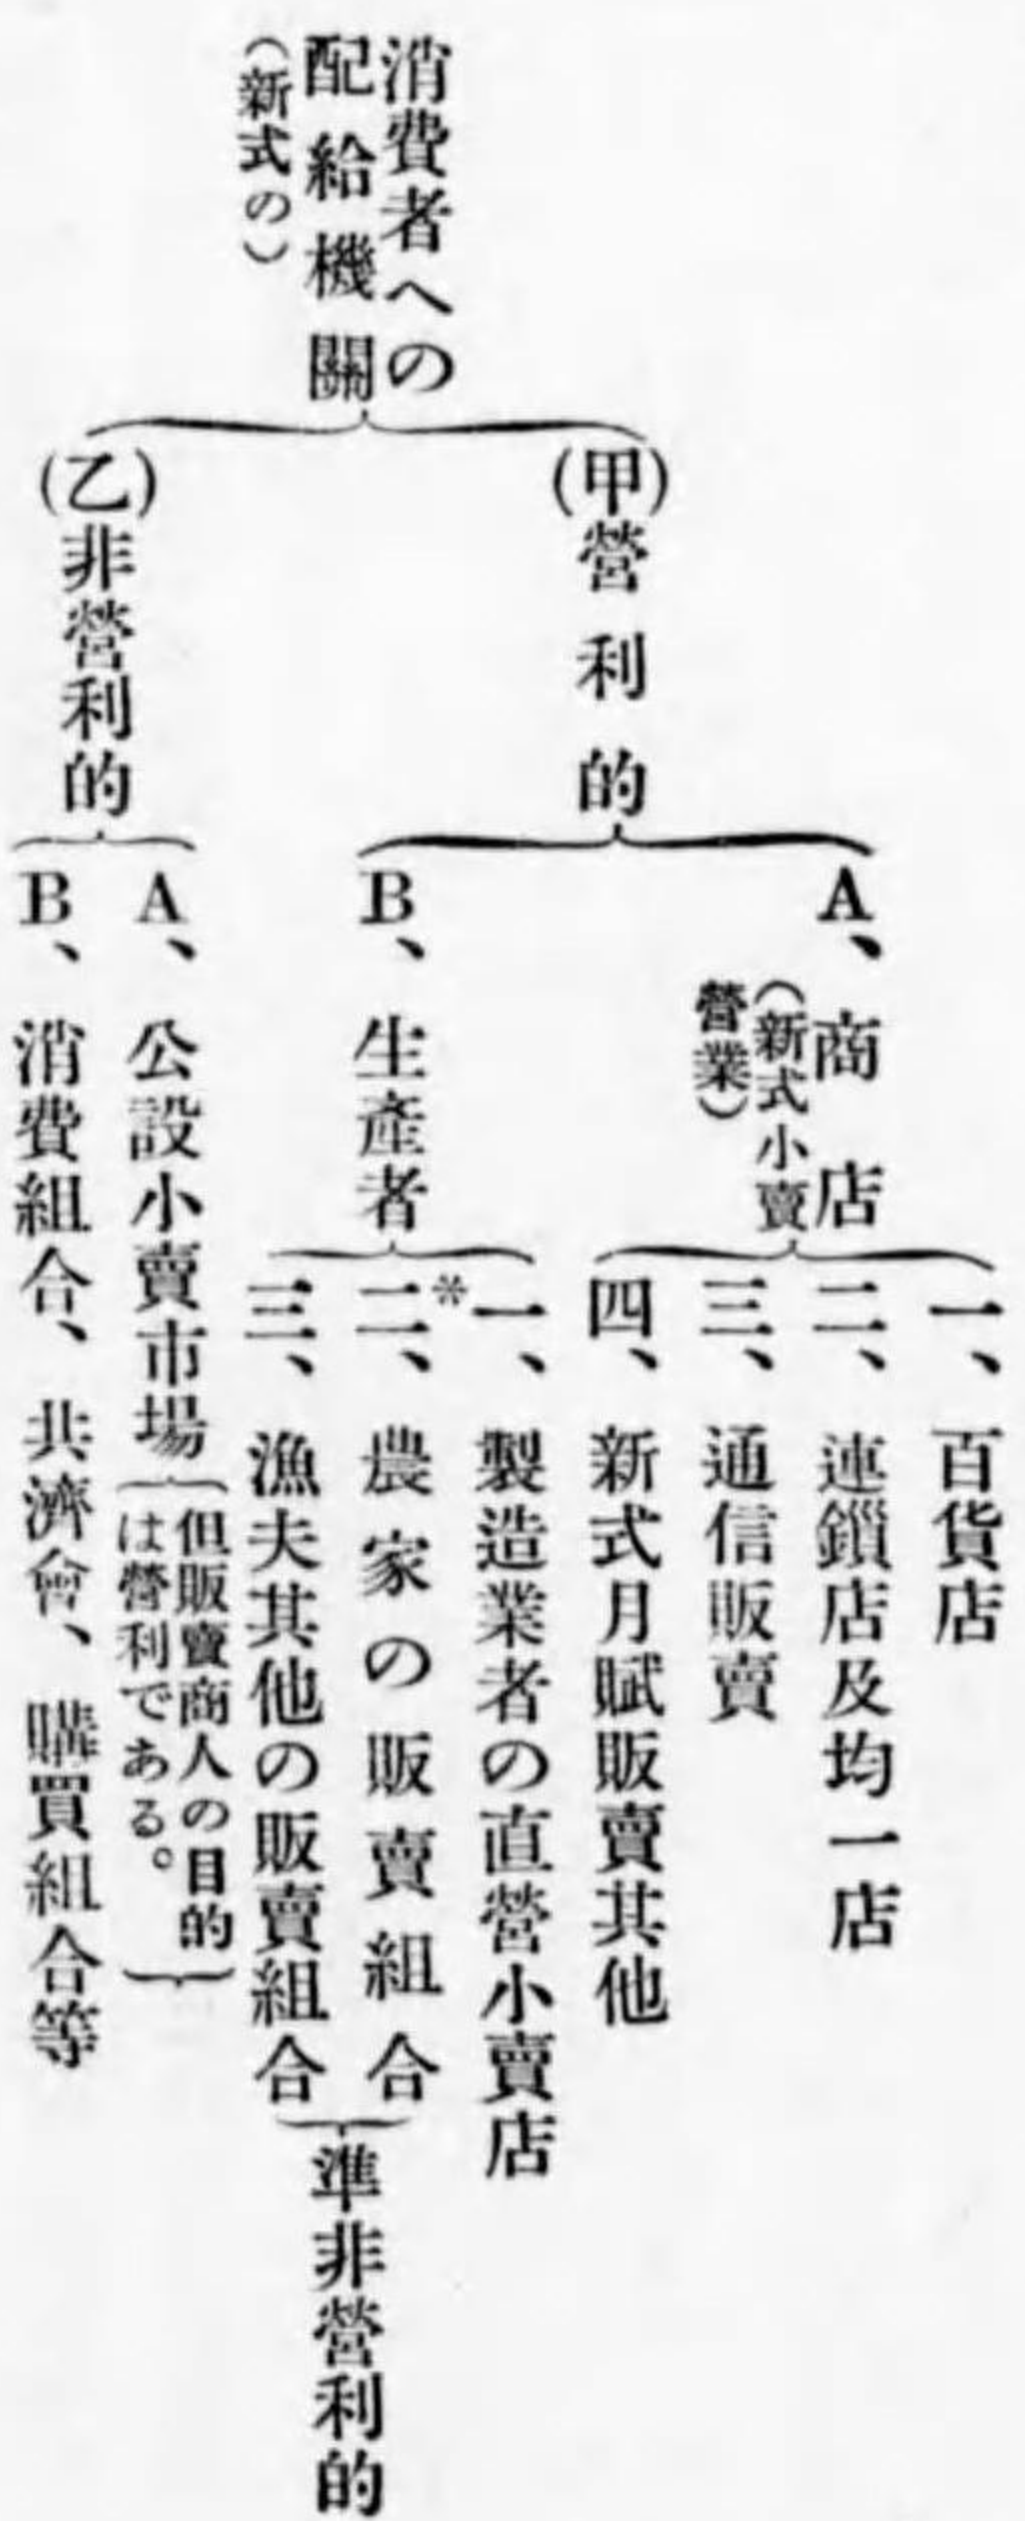 消費者への
配給機關
(新式の)
(甲)營利的
A、商店
(新式小賣
營業)
一、百貨店
二、連鎖店及均一店
三、通信販賣
四、新式月賦販賣其他
B、生產者
一、製造業者の直營小賣店
*
二、農家の販賣組合
三、漁夫其他の販賣組合
準非營利的
(乙)非營利的
A、公設小賣市場
但販賣商人の目的
は營利である。
B、消費組合、共濟會、購買組合等